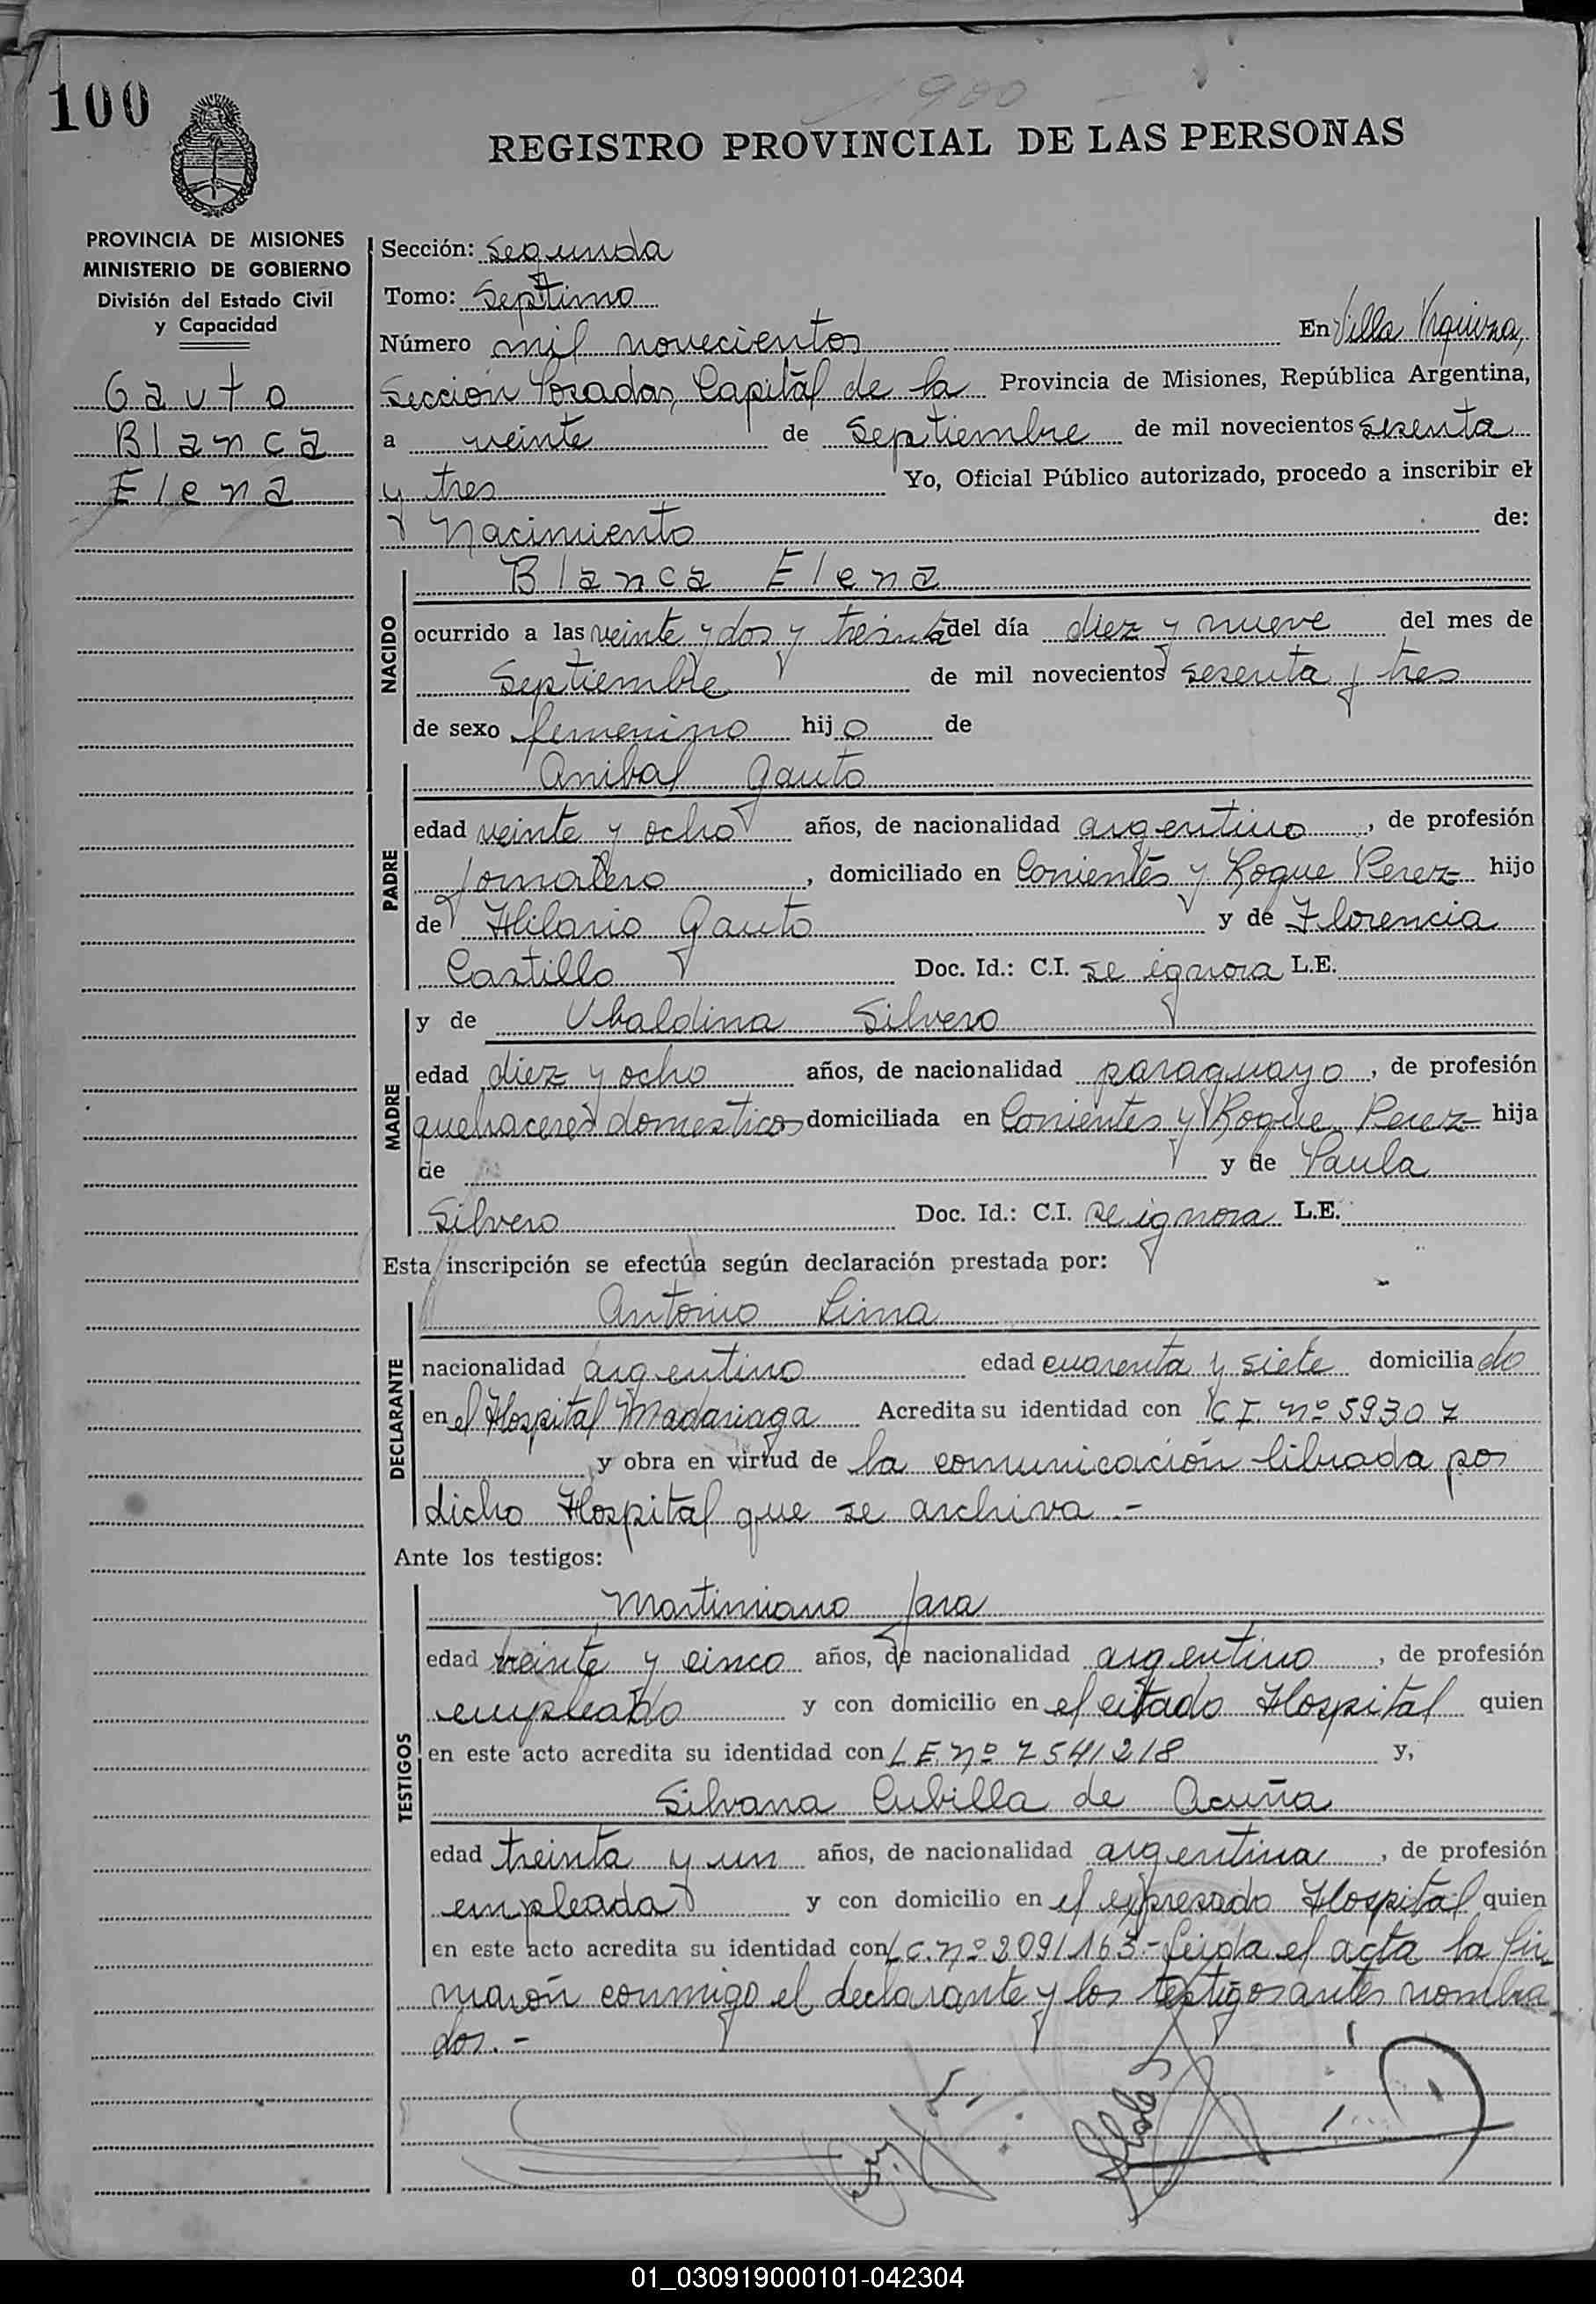 100
900
REGISTRO PROVINCIAL DE LAS PERSONAS
PROVINCIA DE MISIONES
MINISTERIO DE GOBIERNO
División del Estado Civil
y Capacidad
Gauto
Blanca
Elena
Sección: Segunda
Tomo: Septimo
Número mil novecientos En Villa Urquiza,
Sección Posadas, Capital de la Provincia de Misiones, República Argentina,
a veinte de Septiembre de mil novecientos sesenta
y tres Yo, Oficial Público autorizado, procedo a inscribir el
Nacimiento de:
NACIDO
Blanca Elena
ocurrido a las veinte y dos y treinta del día diez y nueve del mes de
Septiembre de mil novecientos sesenta y tres
de sexo femenino hijo de
PADRE
Anibal Gauto
edad veinte y ocho años, de nacionalidad argentino, de profesión
Jornalero, domiciliado en Corrientes y Roque Perez hijo
de Hilario Gauto y de Florencia
Castillo Doc. Id.: C.I. se ignora L.E.
MADRE
y de Ubaldina Silvero
edad diez y ocho años, de nacionalidad paraguayo, de profesión
quehaceres domesticos domiciliada en Corrientes y Roque Perez hija
de y de Paula
Silvero Doc. Id.: C.I. se ignora L.E.
Esta inscripción se efectúa según declaración prestada por:
DECLARANTE
Antonio Lima
nacionalidad argentino edad cuarenta y siete domiciliado
en el Hospital Madariaga Acredita su identidad con C I. nº 59307
y obra en virtud de la comunicación librada por
dicho Hospital que se archiva.-
Ante los testigos:
TESTIGOS
Martiniano Jara
edad veinte y cinco años, de nacionalidad argentino, de profesión
empleado y con domicilio en el citado Hospital quien
en este acto acredita su identidad con L E. nº 7541218 y,
Silvana Cubilla de Acuña
edad treinta y un años, de nacionalidad argentina, de profesión
empleada y con domicilio en el expresado Hospital quien
en este acto acredita su identidad con L.C. nº 2091163.- Leida el acta la fir
maron conmigo el declarante y los testigos antes nombra
dos.-
01_030919000101-042304